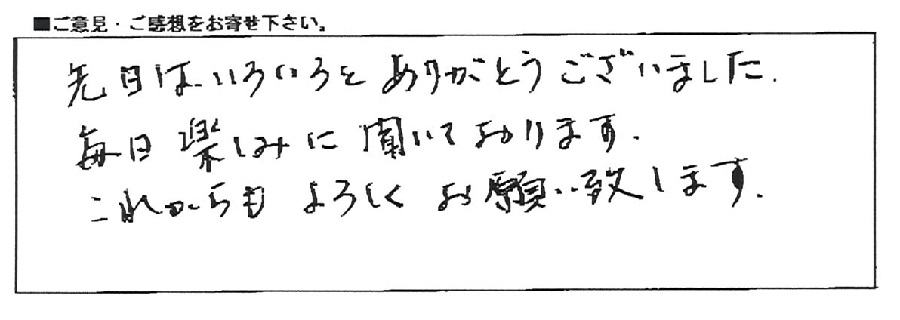 ■ご意見・ご感想をお寄せ下さい。
先日はいろいろとありがとうございました.
毎日楽しみに聞いております.
これからもよろしくお願い致します.